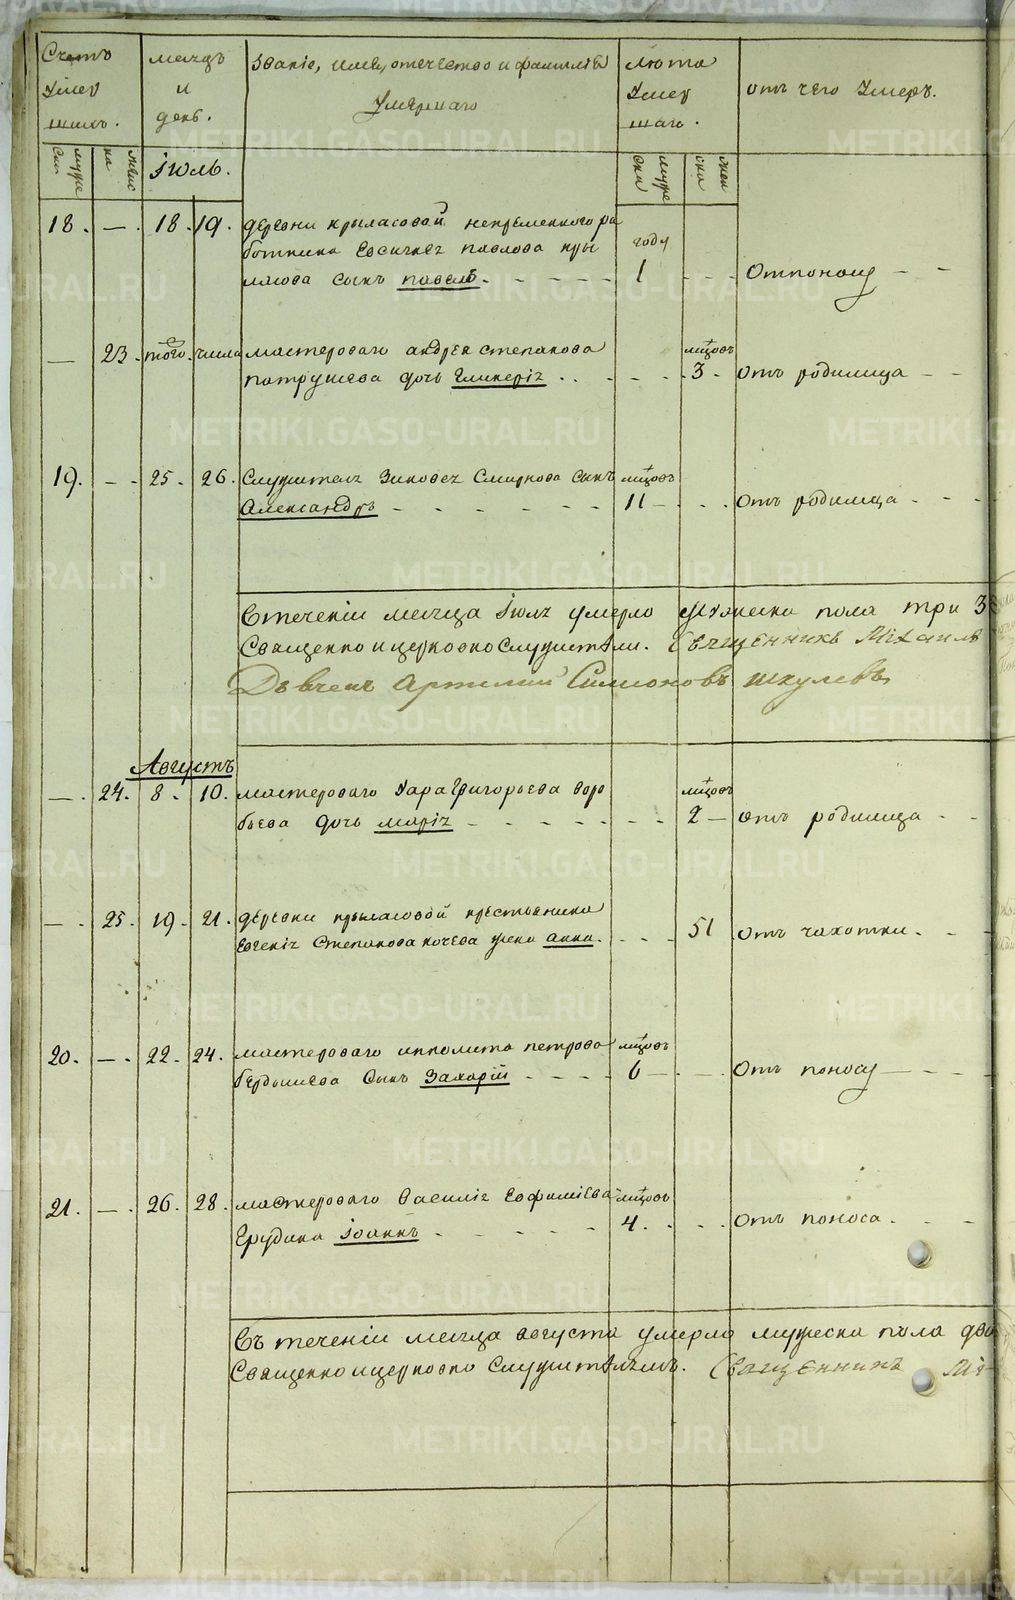 Счетъ умер шихъ.
мѣсяцъ и день.
званіе, имя, отечество и фамилія умершаго
лѣта умер шаго.
отъ чего умеръ.
муже ска
женс ка
Іюль.
муже ска
жен ска
18. — 18. 19. деревни крыласовой непременного ра
ботника Евсичнея павлова кры
ласова сынъ павелъ. году 1 От поносу
— 23. того. числа мастероваго андрея степанова
патрушева дочь Гликерія мцовъ 3. отъ родимца
19. — 25. 26. Служителя Зиновея Смирнова сынъ
Александръ мцовъ 11 отъ родимца
В течении месяца Іюля умерло мужеска пола три 3
Священно и церковно служители. Священникъ Михаилъ
Дьячекъ Артемий Симионовъ шкулевъ
Августъ
— 24. 8. 10. мастероваго Хара Григорьева воро
бьева дочь марія мцовъ 2 отъ родимца
— 25. 19. 21. деревни крыласовой крестьянина
Евгенія Степанова кочева жена анна. 51 отъ чахотки.
20. — 22. 24. мастероваго ипполита петрова
бердышева сынъ Захарій мцовъ 6 отъ поносу
21. — 26. 28. мастероваго Василія Евфиміева
Ерудина Іоаннъ мцовъ 4. отъ поноса.
Въ течении месяца августа умерло мужеска пола два
Священно и церковно служителямъ. Священникъ Ми
METRIKI.GASO-URAL.RU